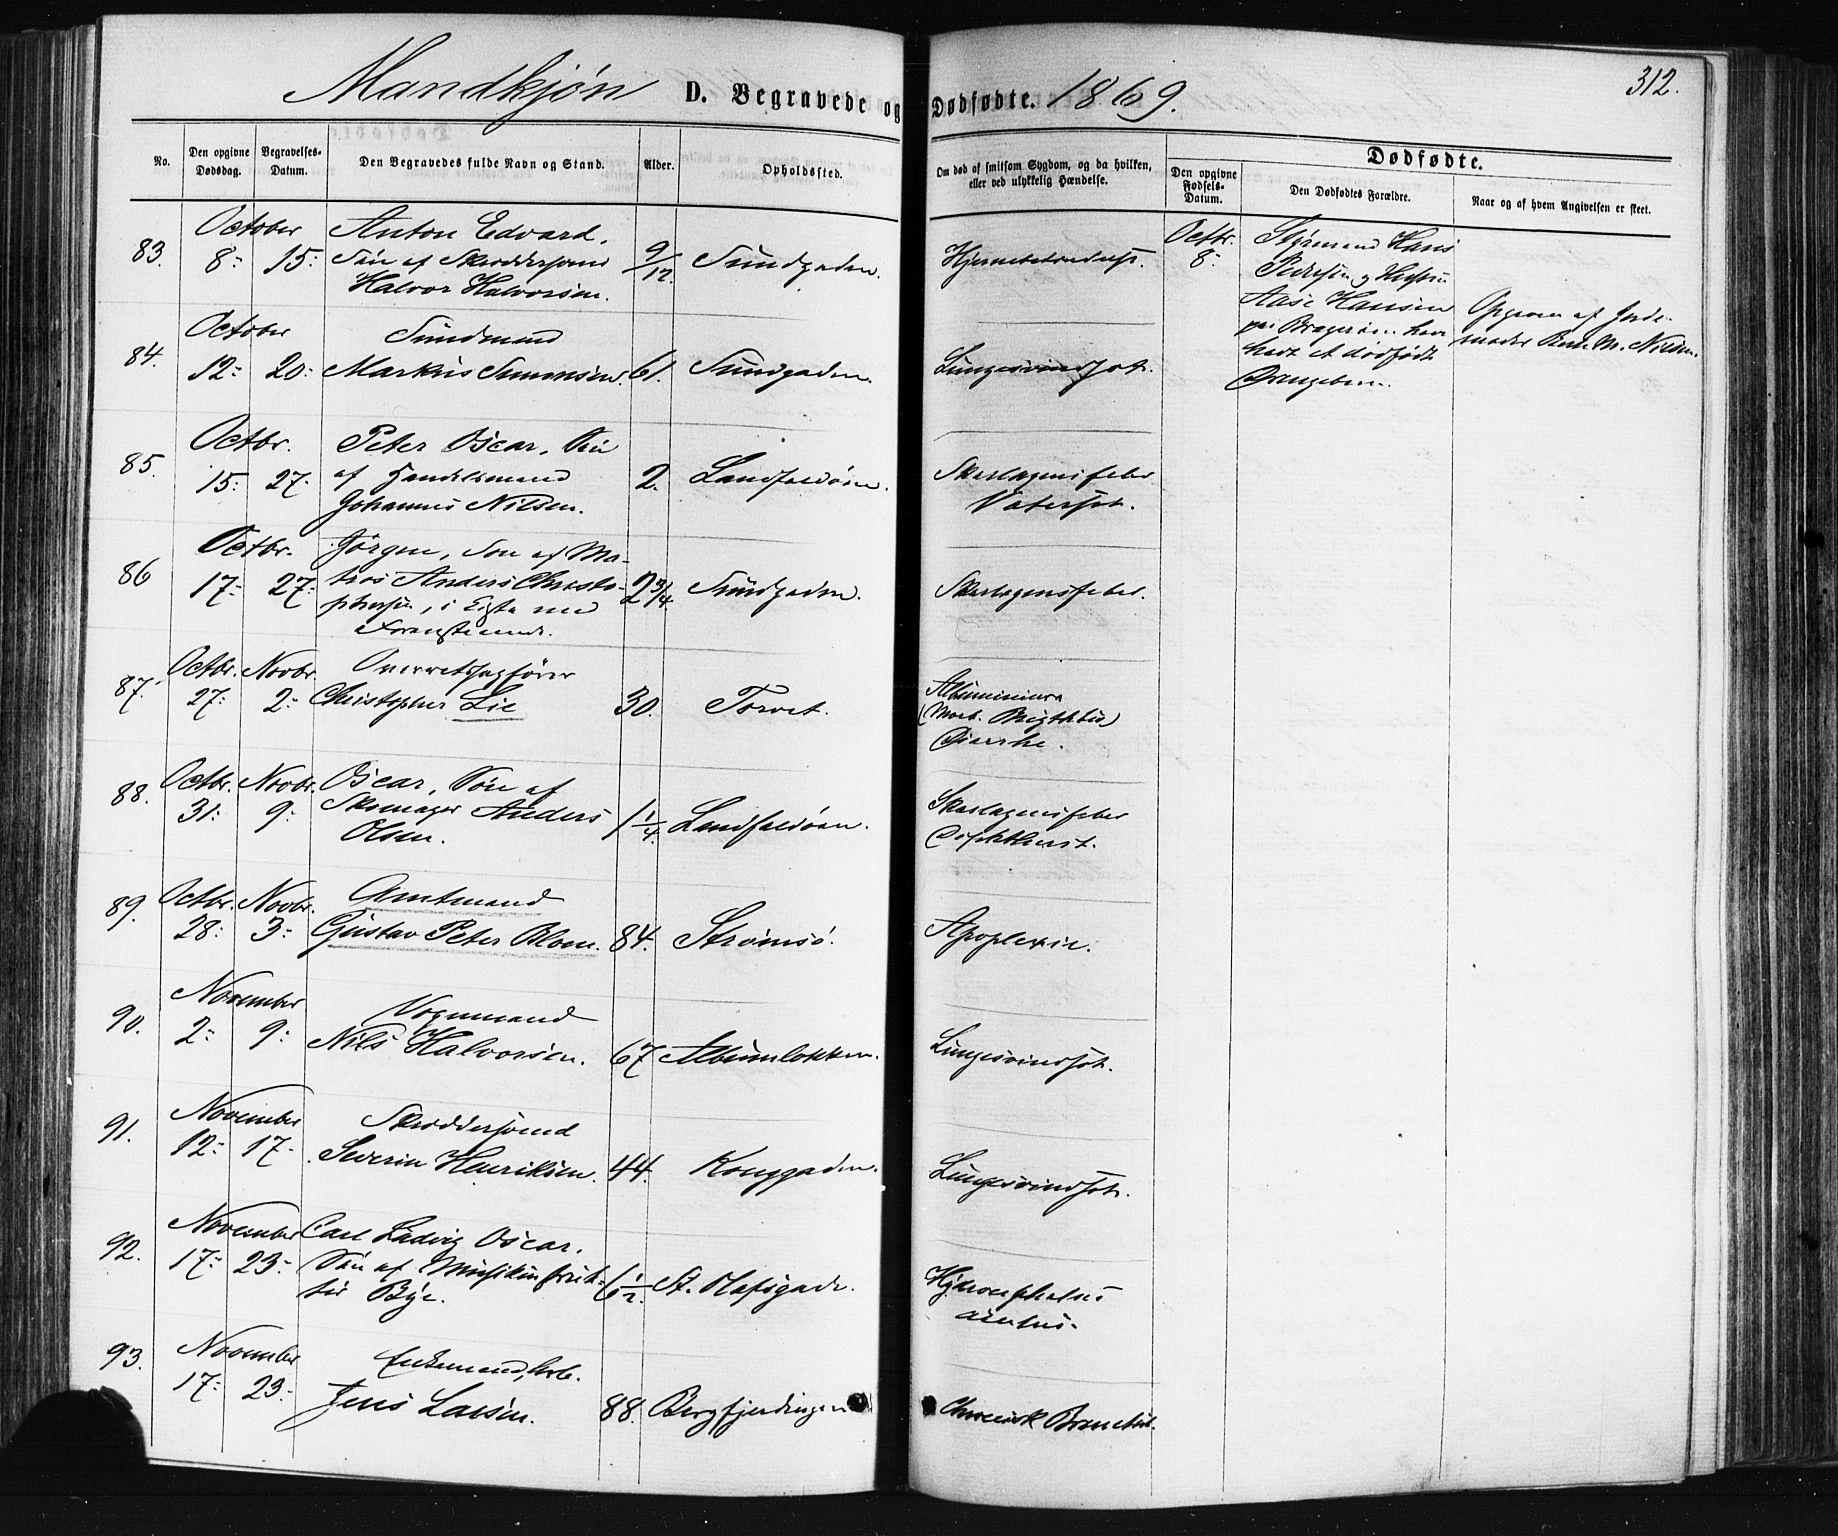 Mandkjøn D. Begravede og Dødfødte. 1869.
312.
No.
Den opgivne Dødsdag.
Begravelses-Datum.
Den Begravedes fulde Navn og Stand.
Alder.
Opholdssted.
Om død af smitsom Sygdom, og da hvilken, eller ved ulykkelig Hændelse.
Dødfødte.
Den opgivne Fødsels-Datum.
Den Dødfødtes Forældre.
Naar og af hvem Angivelsen er skeet.
October Anton Edvard,
83. 8: 15: Søn af Skræddersvend 9/12. Sundgaden.
Halvor Halvorsen.
October Sundmand
84. 12: 20: Markus Simonsen. 61. Sundgaden. Lungesvindsot.
Octbr. Peter Oscar, Søn
85. 15: 27. af Handelsmand 2. Landfaldøen. Skarlagensfeber
Johannes Nilsen. Vatersot.
Octbr. Jørgen, Søn af Ma-
86 17: 27: tros Anders Christo- 2 3/4. Sundgaden. Skarlagensfeber.
phersen, i Egte med
Octbr. Novbr. Overretssagfører Albuminura
87. 27: 2: Christopher Lie 30. Torvet. (Morb. Brigthii)
Diarrhe.
Octbr. Novbr. Oscar, Søn af Skarlagensfeber
88. 31: 9: Skomager Anders 1 1/4. Landfaldøen.
Olsen.
Octbr. Novbr. Amtmand
89. 28: 3: Gustav Peter Blom. 84. Strømsø. Apoplexie.
November Vognmand
90. 2: 9: Nils Halvorsen. 67 Albumløkken. Lungesvindsot.
November Skræddersvend
91. 12: 17. Severin Henriksen. 44. Konggaden. Lungesvindsot.
November Carl Ludvig Oscar,
92. 17: 23: Søn af Musikinstruk- 6 1/2. St. Olafsgade. Hydrocephalus
tør Bye. acutus.
November Enkemand,
93. 17: 23: Jens Larsen. 88. Bergfjerdingen Chronisk Bronchit.
Octbr. Styrmand Hans
8: Pedersen og Hustru
Aase Hansen Opgiven af Jorde-
paa Bragernes have moder M. Nilsen.
havt et dødfødt
Drengebarn.